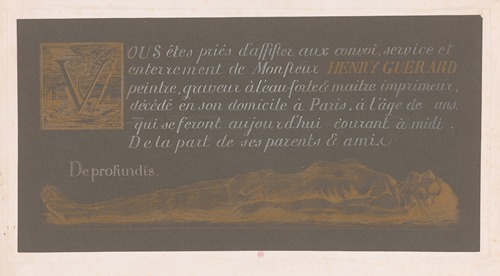 VOUS êtes priés d'assister aux convoi, service et
enterrement de Monsieur HENRY GUERARD
peintre, graveur à l'eau-forte & maitre imprimeur,
décédé en son domicile à Paris, à l'âge de ans,
qui se feront aujourd'hui courant à midi.
De la part de ses parents & amis
De profundis.